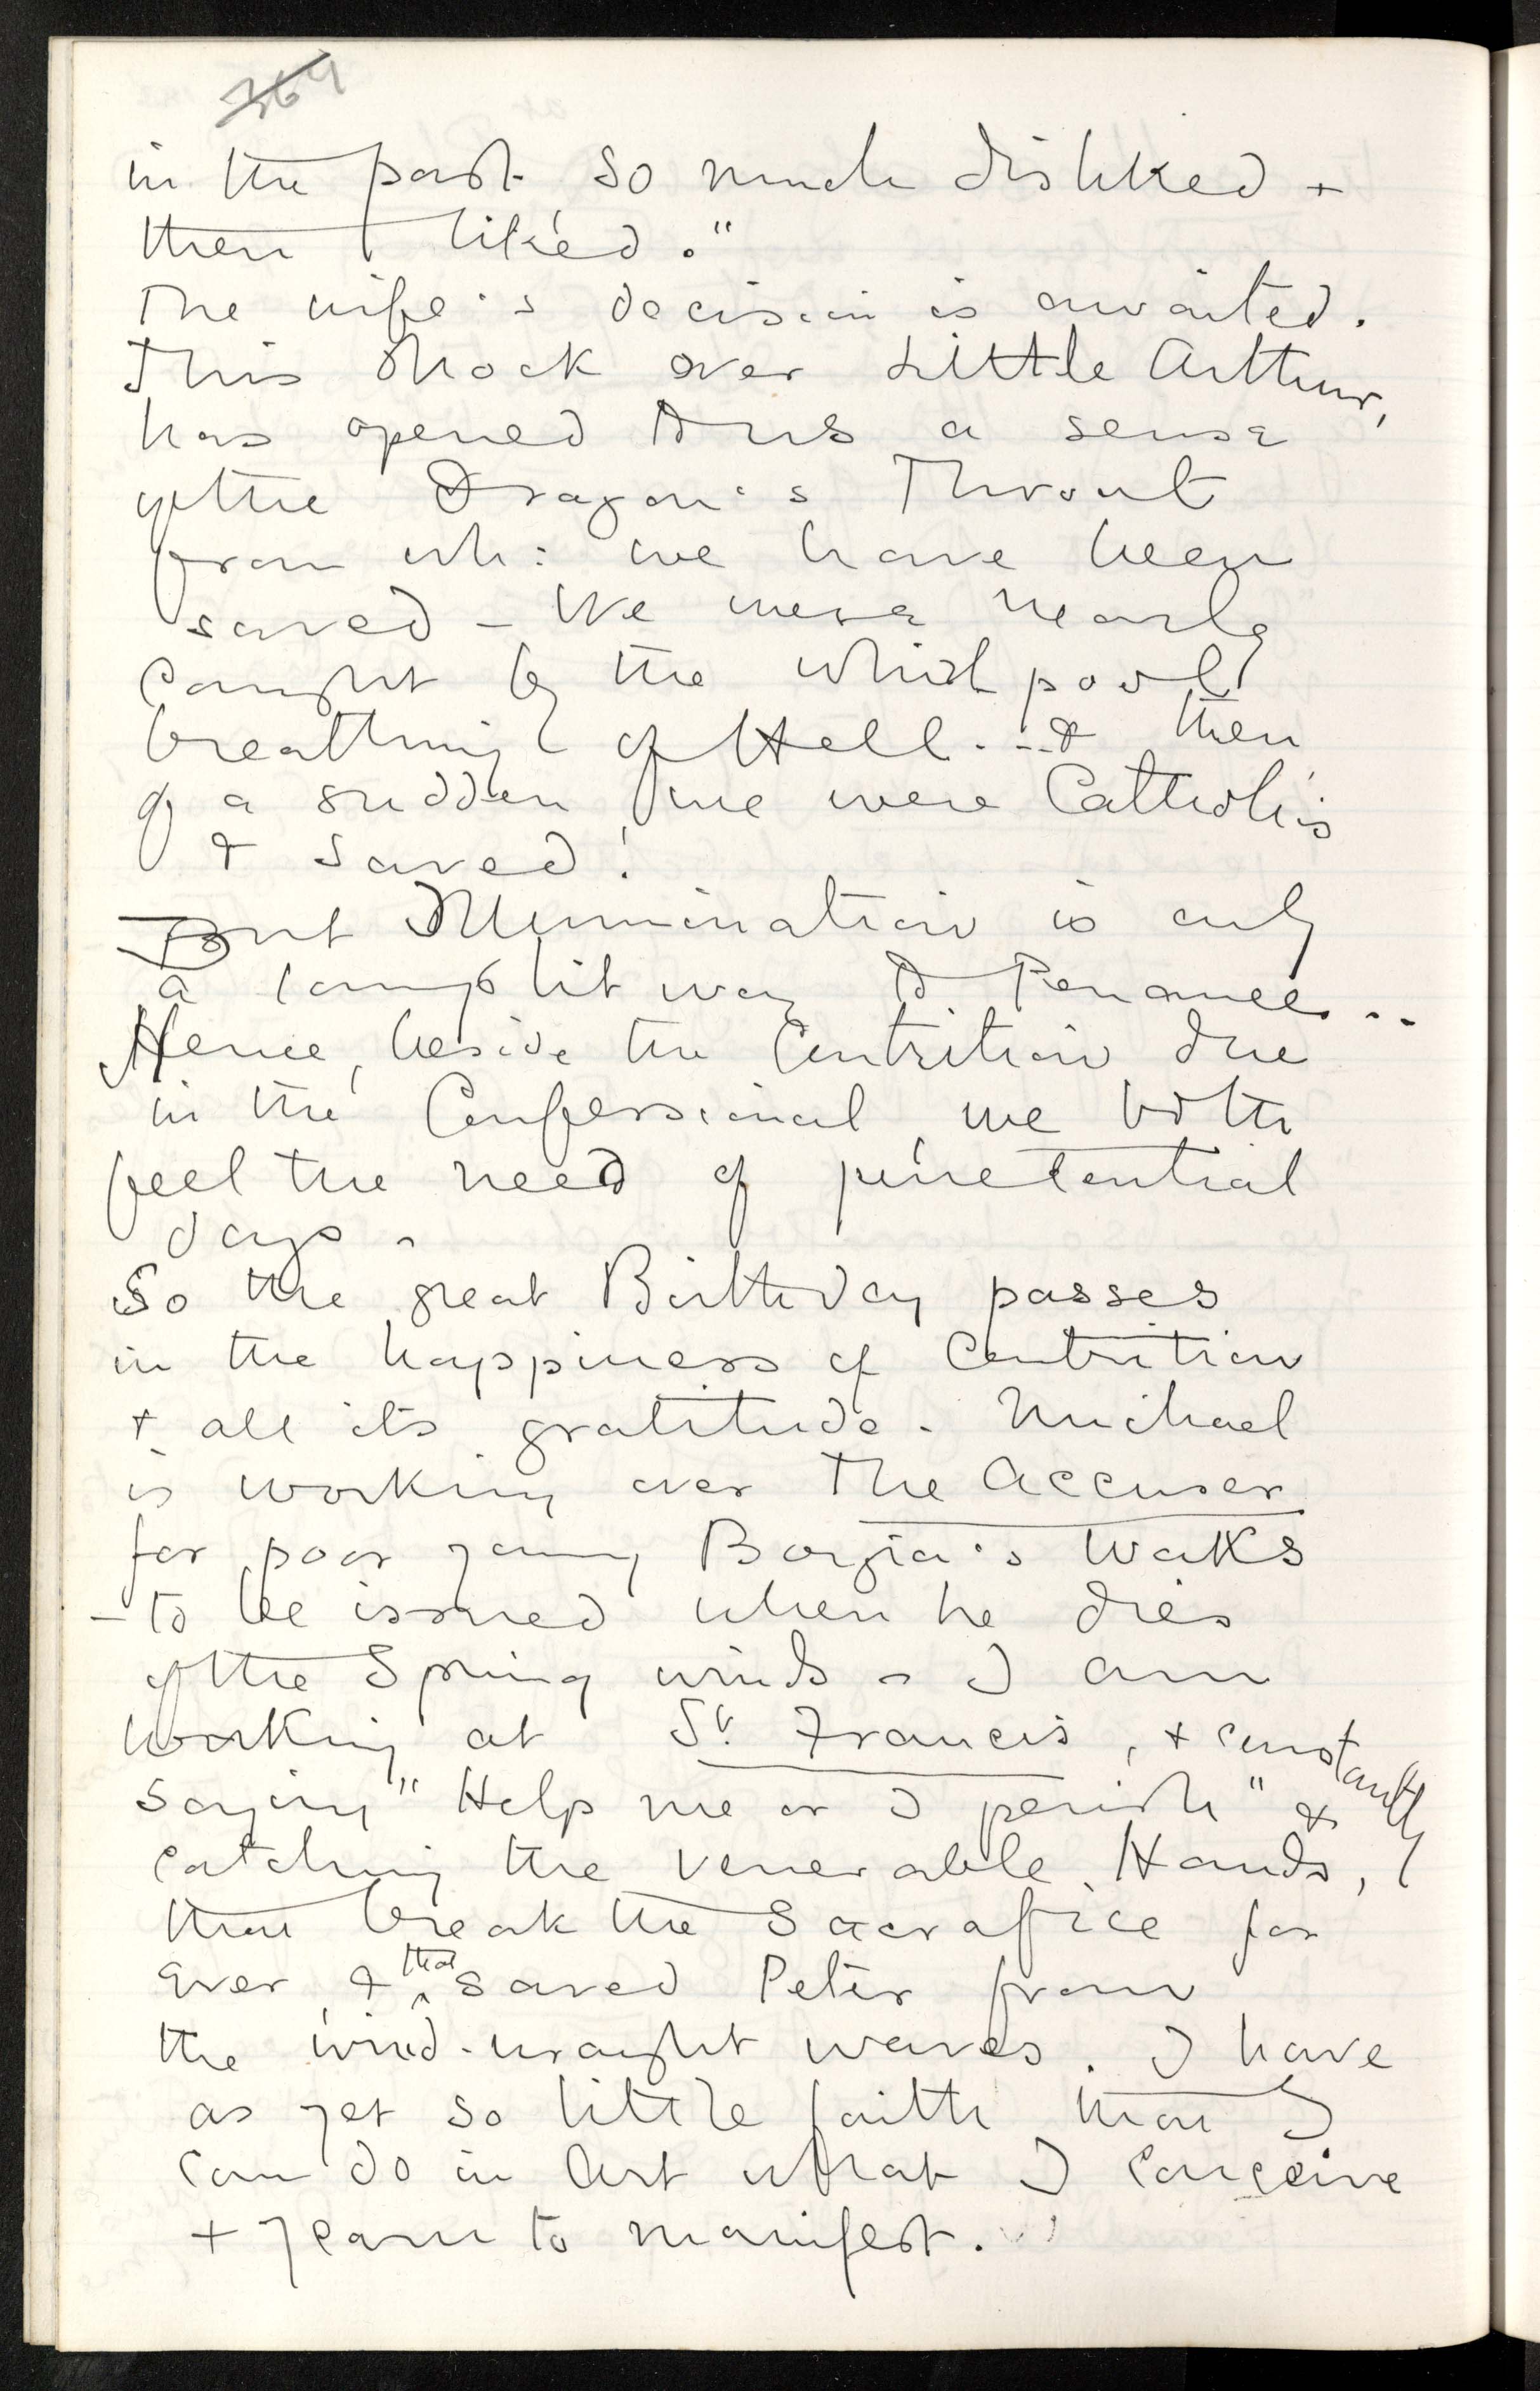 364
in the past so much disliked +
then liked."
The wife's decision is awaited.
This shock over Little Arthur,
has opened to us a sense
of the Dragon's Throat
from wh: we have been
saved – We were nearly
caught by the whirlpool
breathing of Hell... & then
of a sudden we were Catholics
& saved!
But Illumination is only
a lamplit way to Penance...
Hence, beside the Contrition due
in the Confessional, we both
feel the need of penetential
days.
So the great Birthday passes
in the happiness of Contrition
+ all its gratitude. Michael
is working over The Accuser
for poor young Borgia's Works
– to be issued when he dies
of the Spring winds. I am
working at St. Francis, + constantly
saying "Help me or I perish" &
catching the venerable Hands,
that break the Sacrafice for
ever, & that saved Peter from
the wind-wraght waves. I have
as yet so little faith that I
can do in Art what I conceive
+ yearn to manifest.